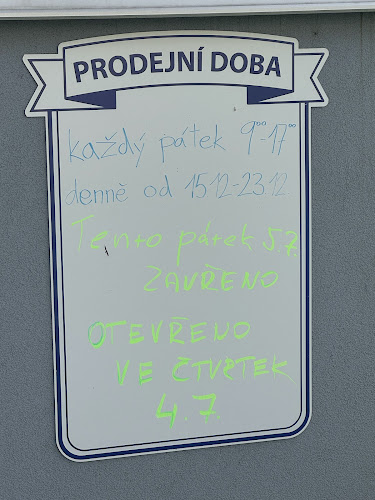 PRODEJNÍ DOBA
každý pátek 9⁰⁰-17⁰⁰
denně od 15.12-23.12
Tento pátek 5.7.
ZAVŘENO
OTEVŘENO
VE ČTVRTEK
4.7.